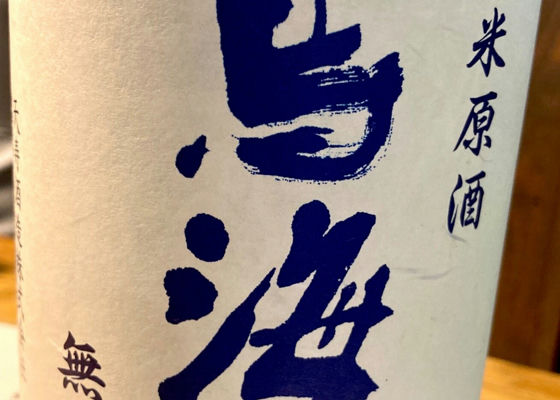 米原酒
鳥海
無